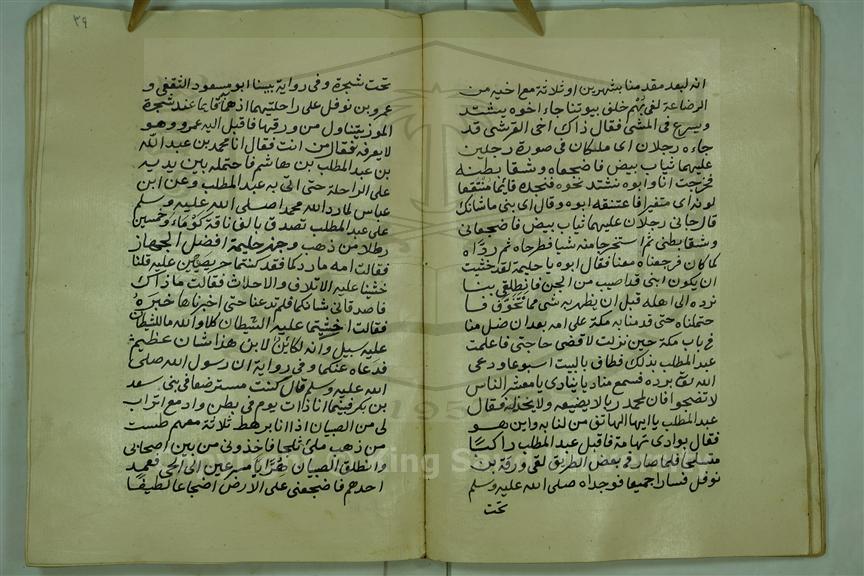 انه لبعد مقدمنا بشهرين او ثلاثة مع اخيه من
الرضاعة لفي بُهْم خلف بيوتنا جاء اخوه يشتد
ويسرع في المشي فقال ذاك اخي القرشي قد
جاءه رجلان اي ملكان في صورة رجلين
عليهما ثياب بيض فاضجعاه وشقا بطنه
فخرجت انا وابوه نشتد نحوه فنجده قائما منتقعا
لونه اي متغيرا فاعتنقه ابوه وقال اي بني ما شانك
قال جاني رجلان عليهما ثياب بيض فاضجعاني
وشقا بطني ثم استخرجا منه شيا فطرحاه ثم ردّاه
كما كان فرجعناه معنا فقال ابوه يا حليمة لقد خشيت
ان يكون ابني قد اصيب من الجن فانطلقي بنا
نرده الى اهله قبل ان يظهر به شي مما نتخوّف قا
حتملناه حتى قدمنا به مكة على امه بعد ان ضل منا
في باب مكة حين نزلت لاقضي حاجتي فاعلمت
عبد المطلب بذلك فطاف بالبيت اسبوعا ودعى
الله تعالى برده فسمع مناديا ينادي يا معشر الناس
لا تضجوا فان لمحمد ربا لا يضيعه ولا يخذله فقال
عبد المطلب يا ايها الهاتف من لنا به واين هو
فقال بوادي تهامة فاقبل عبد المطلب راكبا
متسلحا فلما صار في بعض الطريق لقي ورقة بن
نوفل فسارا جميعا فوجداه صلى الله عليه وسلم
تحت
٣٩
تحت شجرة وفي رواية بينا ابو مسعود الثقفي و
عمرو بن نوفل على راحلتيهما اذ هما قايما عند شجرة
الموز يتناول من ورقها فاقبل اليه عمرو وهو
لا يعرفه فقال من انت فقال انا محمد بن عبد الله
بن عبد المطلب بن هاشم فاحتمله بين يديه
على الراحلة حتى اتى به عبد المطلب وعن ابن
عباس لما رد الله محمدا صلى الله عليه وسلم
على عبد المطلب تصدق بالف ناقة كَوْمَاء وخمسين
رطلا من ذهب وجهز حليمة افضل الجهاز
فقالت امه ما ردكما فقد كنتما حريصين عليه قلنا
خشينا عليه الاتلاف والاحداث فقالت ما ذاك
فاصدقاني شانكما فلم تدعنا حتى اخبرناها خبره
فقالت اخشيتما عليه الشيطان كلا والله ما للشيطان
عليه سبيل وانه لكائن لابن هذا شان عظيم
فدعاه عنكما وفي رواية ان رسول الله صلى
الله عليه وسلم قال كنت مسترضعا في بني سعد
بن بكر فبينما انا ذات يوم في بطن واد مع اتراب
لي من الصبيان اذا انا برهط ثلاثة معهم طست
من ذهب ملئ ثلجا فاخذوني من بين اصحابي
وانطلق الصبيان هُرَّابا مسرعين الى الحي فعمد
احدهم فاضجعني على الارض اضجاعا لطيفا